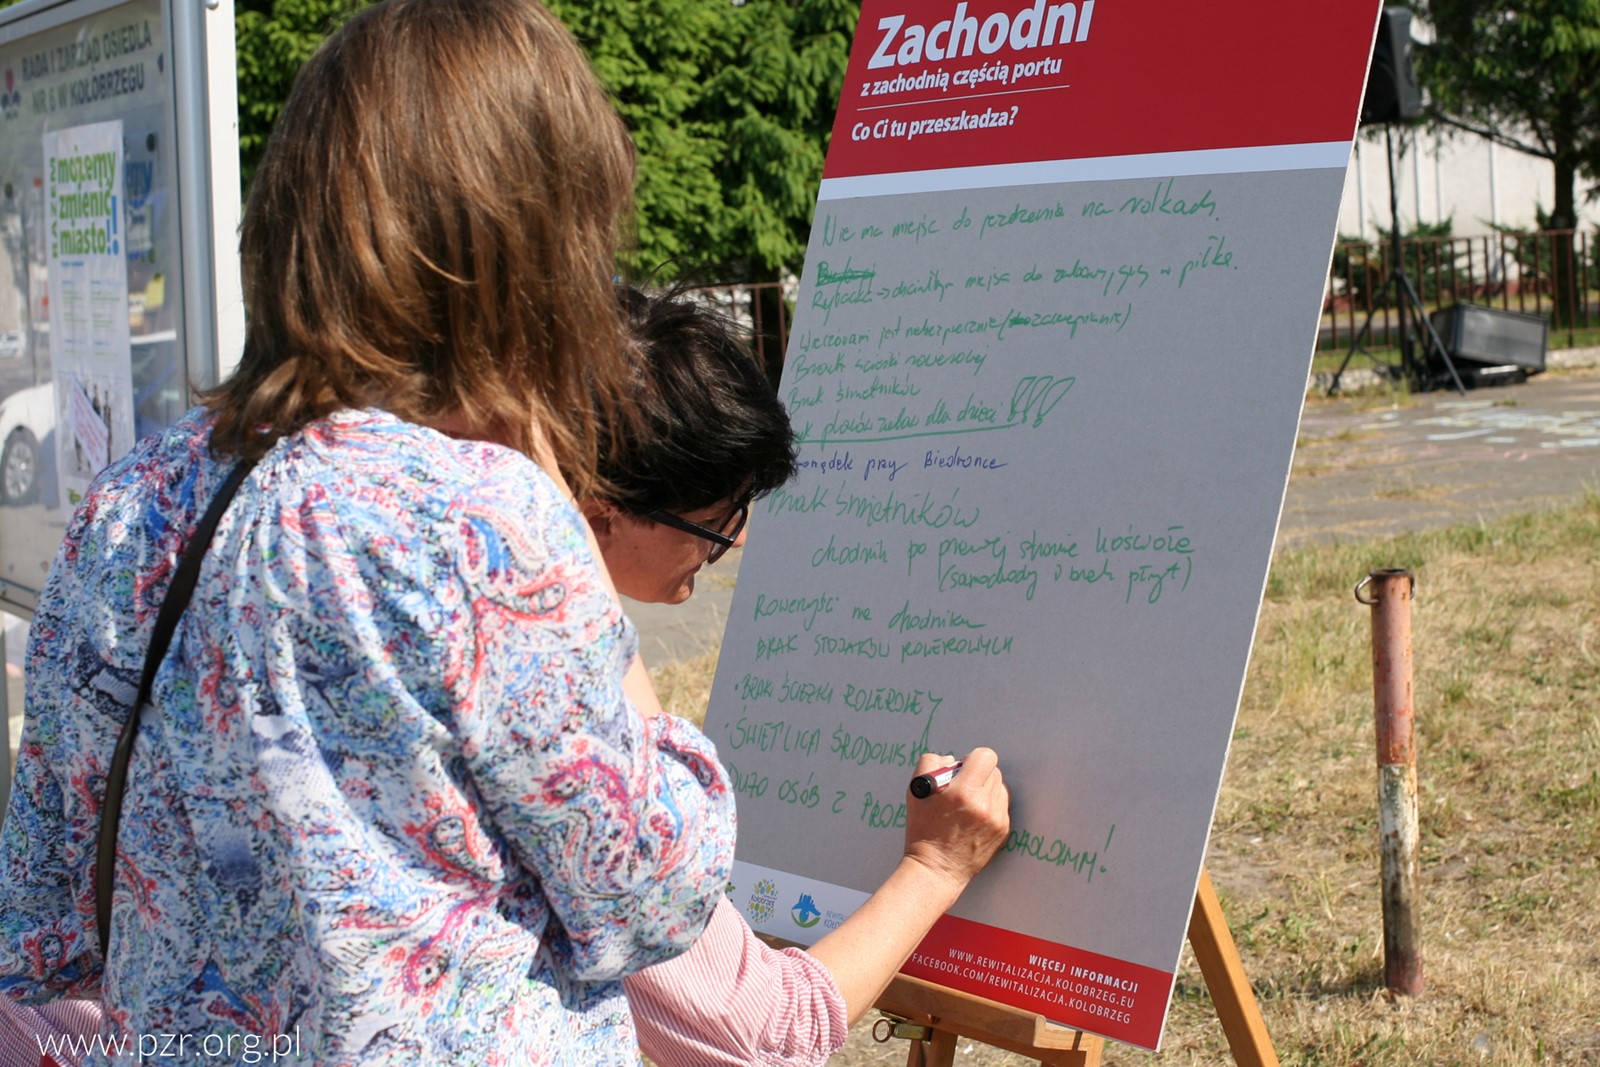 RADA I ZARZĄD OSIEDLA
NR 6 W KOŁOBRZEGU
możemy
zmienić
miasto!!
Zachodni
z zachodnią częścią portu
Co Ci tu przeszkadza?
Nie ma miejsc do jeżdżenia na rolkach.
Rybacka → chciałbym miejsca do zabawy w piłkę.
Wieczorami jest niebezpiecznie (zaczepianie)
Brak ścieżki rowerowej
Brak śmietników
placów zabaw dla dzieci !!!
przy Biedronce
Brak śmietników
chodnik po prawej stronie kościoła
(samochody i brak płyt)
Rowerzyści na chodniku
BRAK STOJAKÓW ROWEROWYCH
• BRAK ŚCIEŻKI ROWEROWEJ
• ŚWIETLICA ŚRODOWISK
DUŻO OSÓB Z PROB
kołobrzeg
WIĘCEJ INFORMACJI
WWW.REWITALIZACJA.KOLOBRZEG.EU
FACEBOOK.COM/REWITALIZACJA.KOLOBRZEG
www.pzr.org.pl